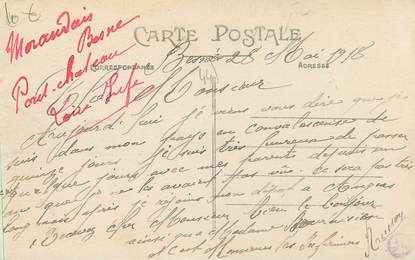 10 €
Morandais
Besne
Pont-chateau
Loire Infe
CARTE POSTALE
CORRESPONDANCE
ADRESSE
Besné 28 Mai 1918
44
Monsieur
Aujourd'hui je viens vous dire que je
suis dans mon pays en convalescence de
quinze jours je suis très heureux de passer
quelque jours avec mes parents depuis un
ans que je ne les avaient pas vue. Ce sera pas très
long mais après je rejoins mon
Recevez cher Monsieur bien le bonjour
ainsi qu'a Madame
et c'est Messieurs les Infirmiers